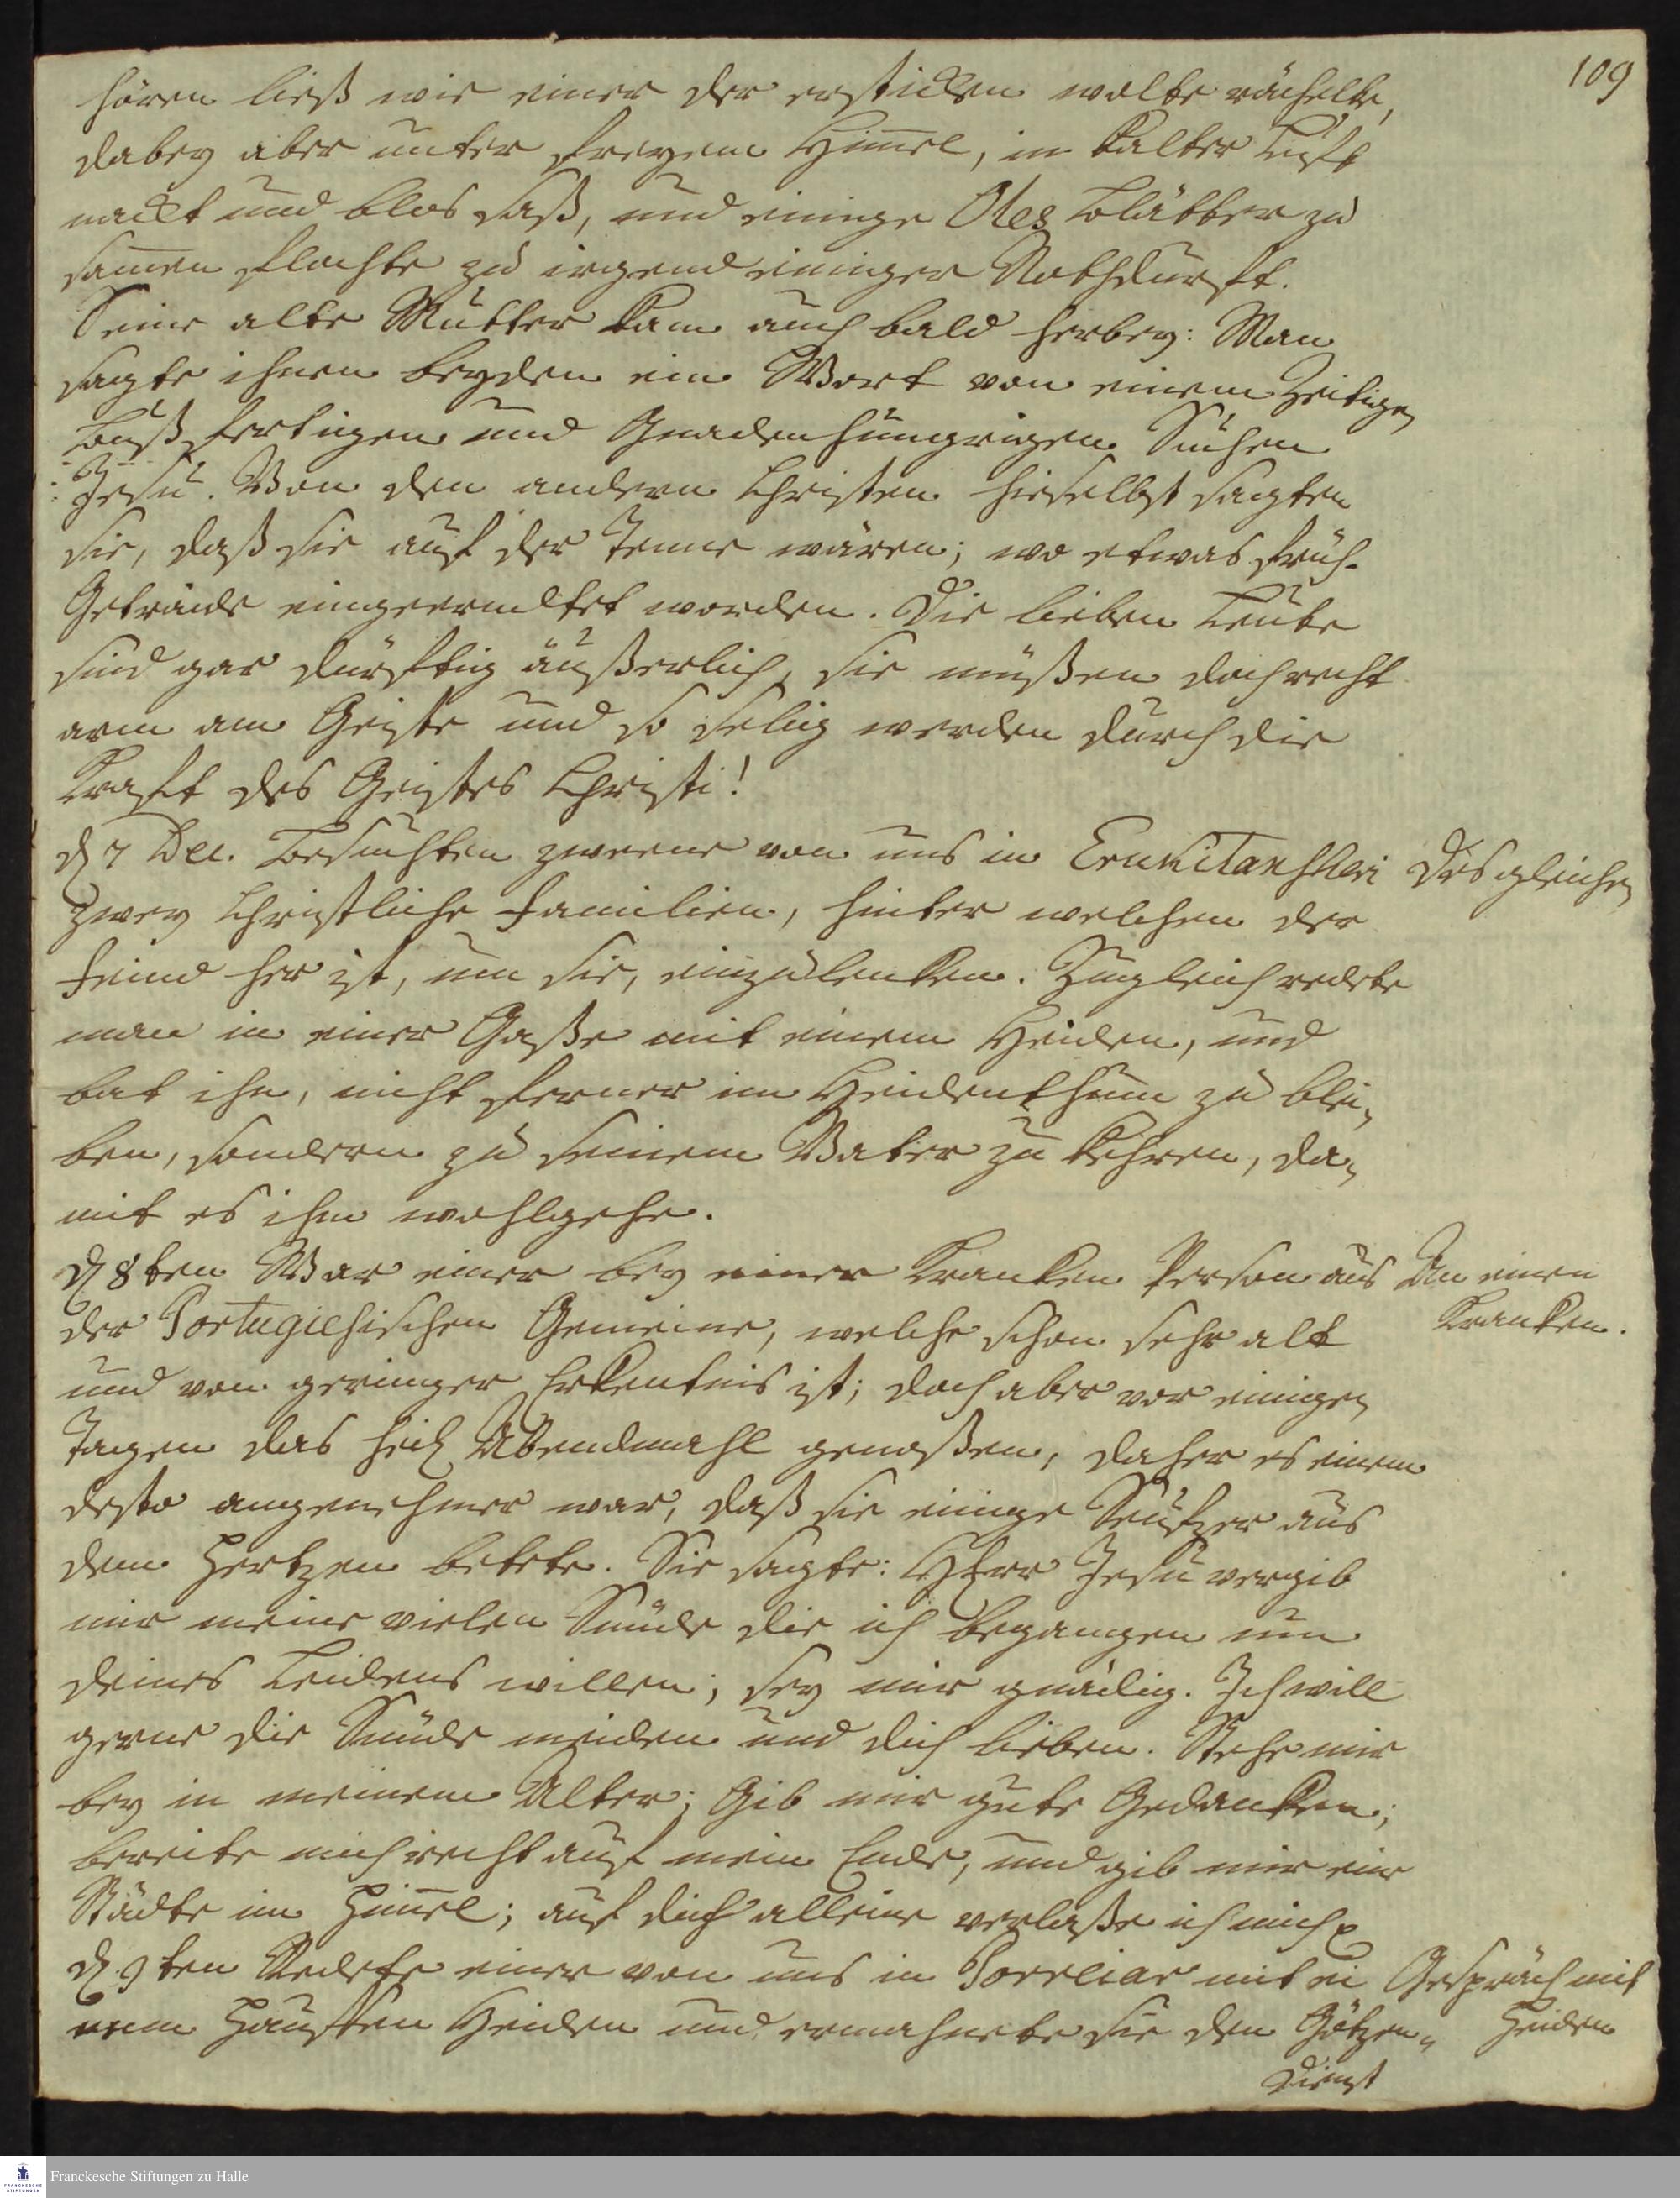 109
hören ließ wie einer der ersticken wolte röchelte,
dabey aber unter freyem Him̄el, in kalter Luft
nackt und blos saß, und einige Oles Blätter zu
sam̄en flochte zu irgend einiger Nothdurft.
Seine alte Mutter kam auch bald herbey: Man
sagte ihnen beyden ein Wort von einem Zeitigen
bußfertigen und Gnadenhungrigen Suchen
Jesu. Von den andern Christen hieselbst sagten
sie, daß sie auf der Tenne wären; wo etwas früh-
Getraide eingeerndtet worden. Die lieben Leute
sind gar dürftig äußerlich, sie müßen doch recht
arm am Geiste und so selig werden durch die
Kraft des Geistes Christi!
d 7 Dec. Besuchten zweene von uns in Erukitanscheri
Desgleichen
zwey Christliche Familien, hinter welchen der
Feind her ist, um sie, einzulenken. Zugleich redete
man in einer Gaße mit einem Heiden, und
bat ihn, nicht ferner im Heidenthum zu blei-
ben, sondern zu seinem Vater zu kehren, da-
mit es ihm wohlgehe.
d 8ten War einer bey einer Kranken Person aus
An einen
Kranken.
der Portugiesischen Gemeine, welche schon sehr alt
und von geringer Erkentnis ist; doch aber vor einigen
Tagen das heil Abendmahl genoßen, daher es einem
desto angenehmer war, daß sie einige Seufzer aus
dem Hertzen betete. Sie sagte: HErr Jesu vergib
mir meine vielen Sünde die ich begangen um
deines Leidens willen; sey mir gnädig. Ich will
gerne die Sünde meiden und dich lieben. Stehe mir
bey in meinem Alter; Gib mir gute Gedanken;
bereite mich recht auf mein Ende, und gib mir eine
Städte im Him̄el; auf dich alleine verlaße ich mich
d 9ten Redete einer von uns in Porreiar mit ei
Gespräch mit
Heiden
nem Hauffen Heiden und ermahnete sie den Götzen-
Dienst
Franckesche Stiftungen zu Halle
FRANCKESCHE STIFTUNGEN